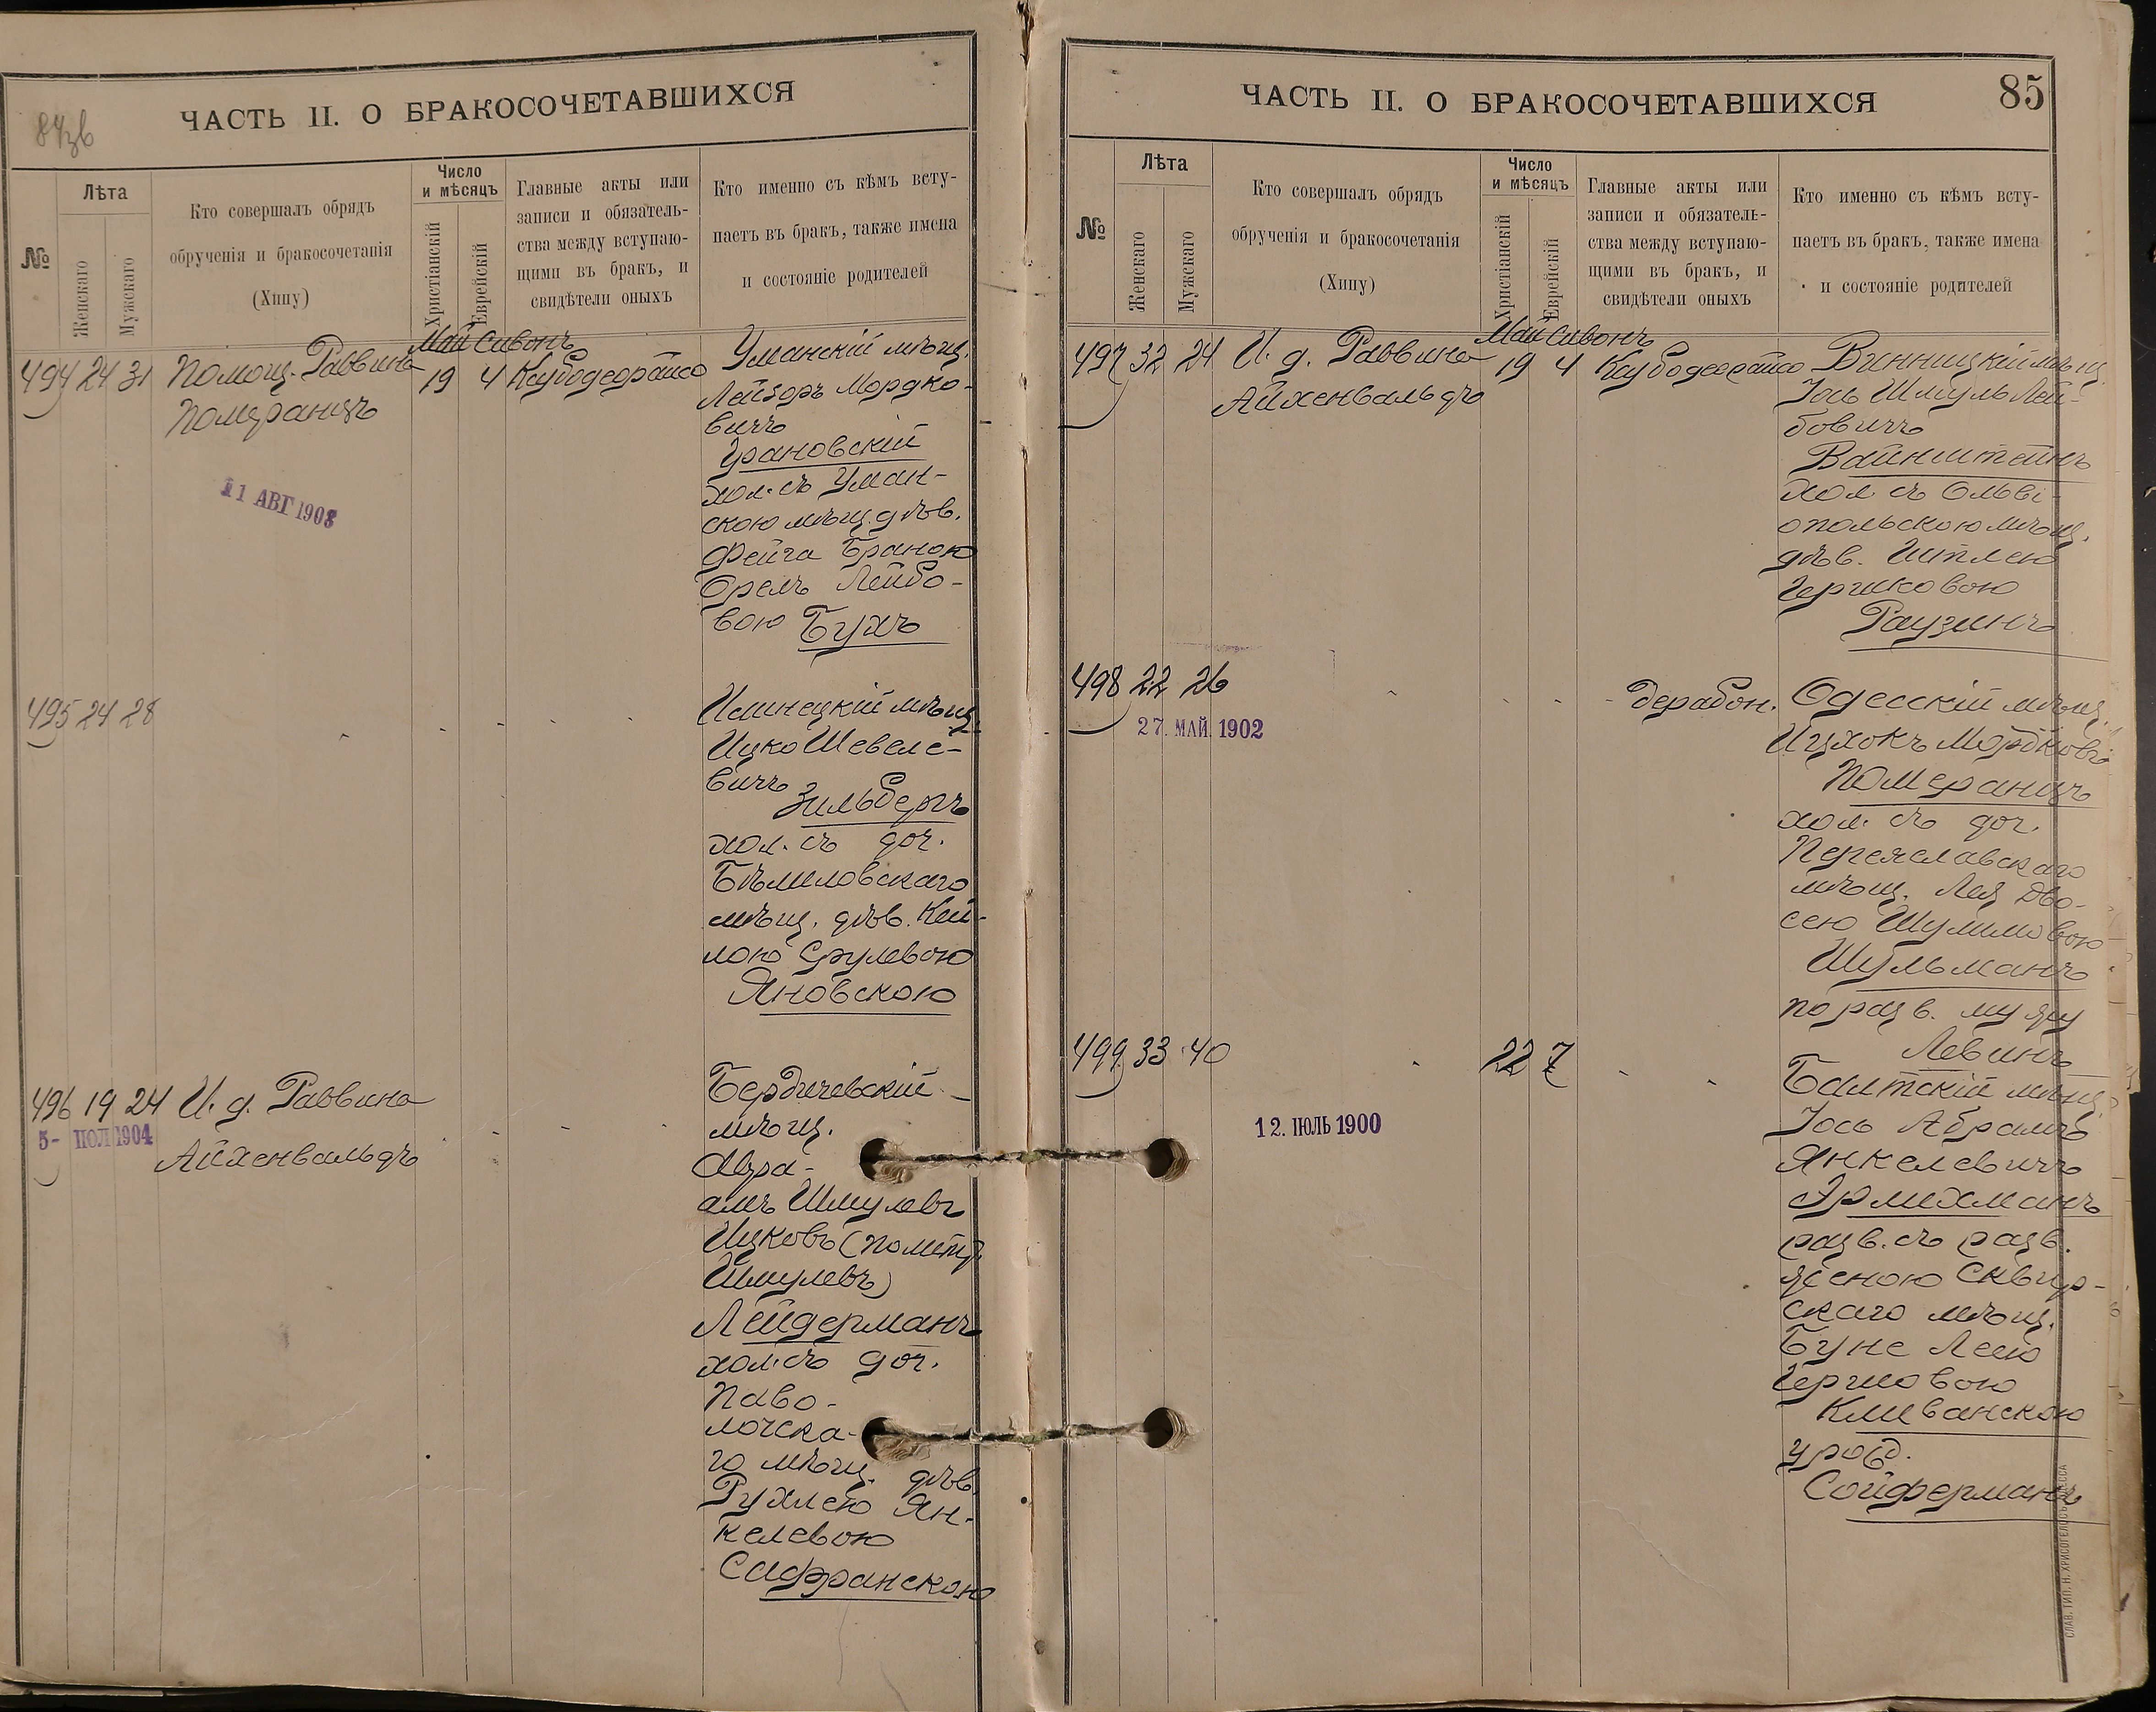 84зв
ЧАСТЬ II. О БРАКОСОЧЕТАВШИХСЯ
№
Лѣта
Женскаго
Мужскаго
Кто совершалъ обрядъ
обрученія и бракосочетанія
(Хипу)
Число
и мѣсяцъ
Христіанскій
Еврейскій
Главные акты или
записи и обязатель-
ства между вступаю-
щими въ бракъ, и
свидѣтели оныхъ
Кто именно съ кѣмъ всту-
паетъ въ бракъ, также имена
и состояніе родителей
Май Сивонъ
494 24 31 Помощ. Раввина 19 4
Померанцъ
11 АВГ 1908
Уманскій мѣщ.
Лейзоръ Мордко-
вичъ
Урановскій
хол. съ Уман-
скою мѣщ. дѣв.
Фейга Браною
Орелъ Лейбо-
вою Бухъ
495 24 28
Илинецкій мѣщ.
Ицко Шевеле-
вичъ
Зильбергъ
хол. съ доч.
Бѣлиловскаго
мѣщ. дѣв. Кей-
лою Срулевою
Яновскою
496 19 24 И. д. Раввина
Айхенвальдъ
5- ІЮЛ 1904
Бердичевскій
мѣщ.
Авра-
амъ Шмулевъ
Ицковъ (
Шмулевъ)
Лейдерманъ
хол. съ доч.
Паво-
лочска-
го мѣщ. дѣв.
Рухлею Ян-
келевою
Сафранскою
ЧАСТЬ II. О БРАКОСОЧЕТАВШИХСЯ
85
№
Лѣта
Женскаго
Мужскаго
Кто совершалъ обрядъ
обрученія и бракосочетанія
(Хипу)
Число
и мѣсяцъ
Христіанскій
Еврейскій
Главные акты или
записи и обязатель-
ства между вступаю-
щими въ бракъ, и
свидѣтели оныхъ
Кто именно съ кѣмъ всту-
паетъ въ бракъ, также имена
и состояніе родителей
Май Сивонъ
497 32 24 И. д. Раввина 19 4
Айхенвальдъ
Винницкій мѣщ.
Іось Шмуль Лей-
бовичъ
Вайнштейнъ
хол. съ Ольві-
опольскою мѣщ.
дѣв. Гитлею
Гершковою
Раузинъ
498 22 26
27. МАЙ. 1902
дерабон.
Одесскій мѣщ.
Ицхокъ Мордковъ
Померанцъ
хол. съ доч.
Переяславскаго
мѣщ. Лея Дво-
сею Шулимовою
Шульманъ
по разв. мужу
Левинъ
499 33 40 22 7
12. ІЮЛЬ 1900
Балтскій мѣщ.
Іось Абрамъ
Янкелевичъ
Эрлихманъ
разв. съ разв.
женою Сквир-
скаго мѣщ.
Буне Леею
Гершовою
Кливанскою
урожд.
Сойферманъ
СЛАВ. ТИП. Н. ХРИСОГЕЛОСЪ ОДЕССА